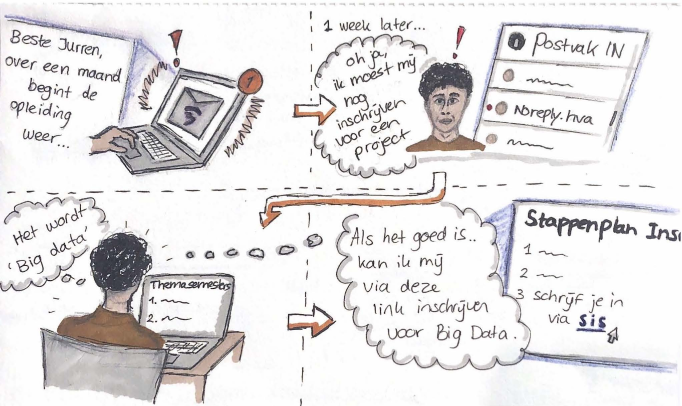 Beste Jurren,
over een maand
begint de
opleiding
weer...
!
1
1 week later...
oh ja,
ik moest mij
nog
inschrijven
voor een
project
!
Postvak IN
Noreply.hva
Het wordt
'Big data'
Themasemesters
1.
2.
Als het goed is..
kan ik mij
via deze
link inschrijven
voor Big Data.
Stappenplan Ins
1
2
3 schrijf je in
via sis